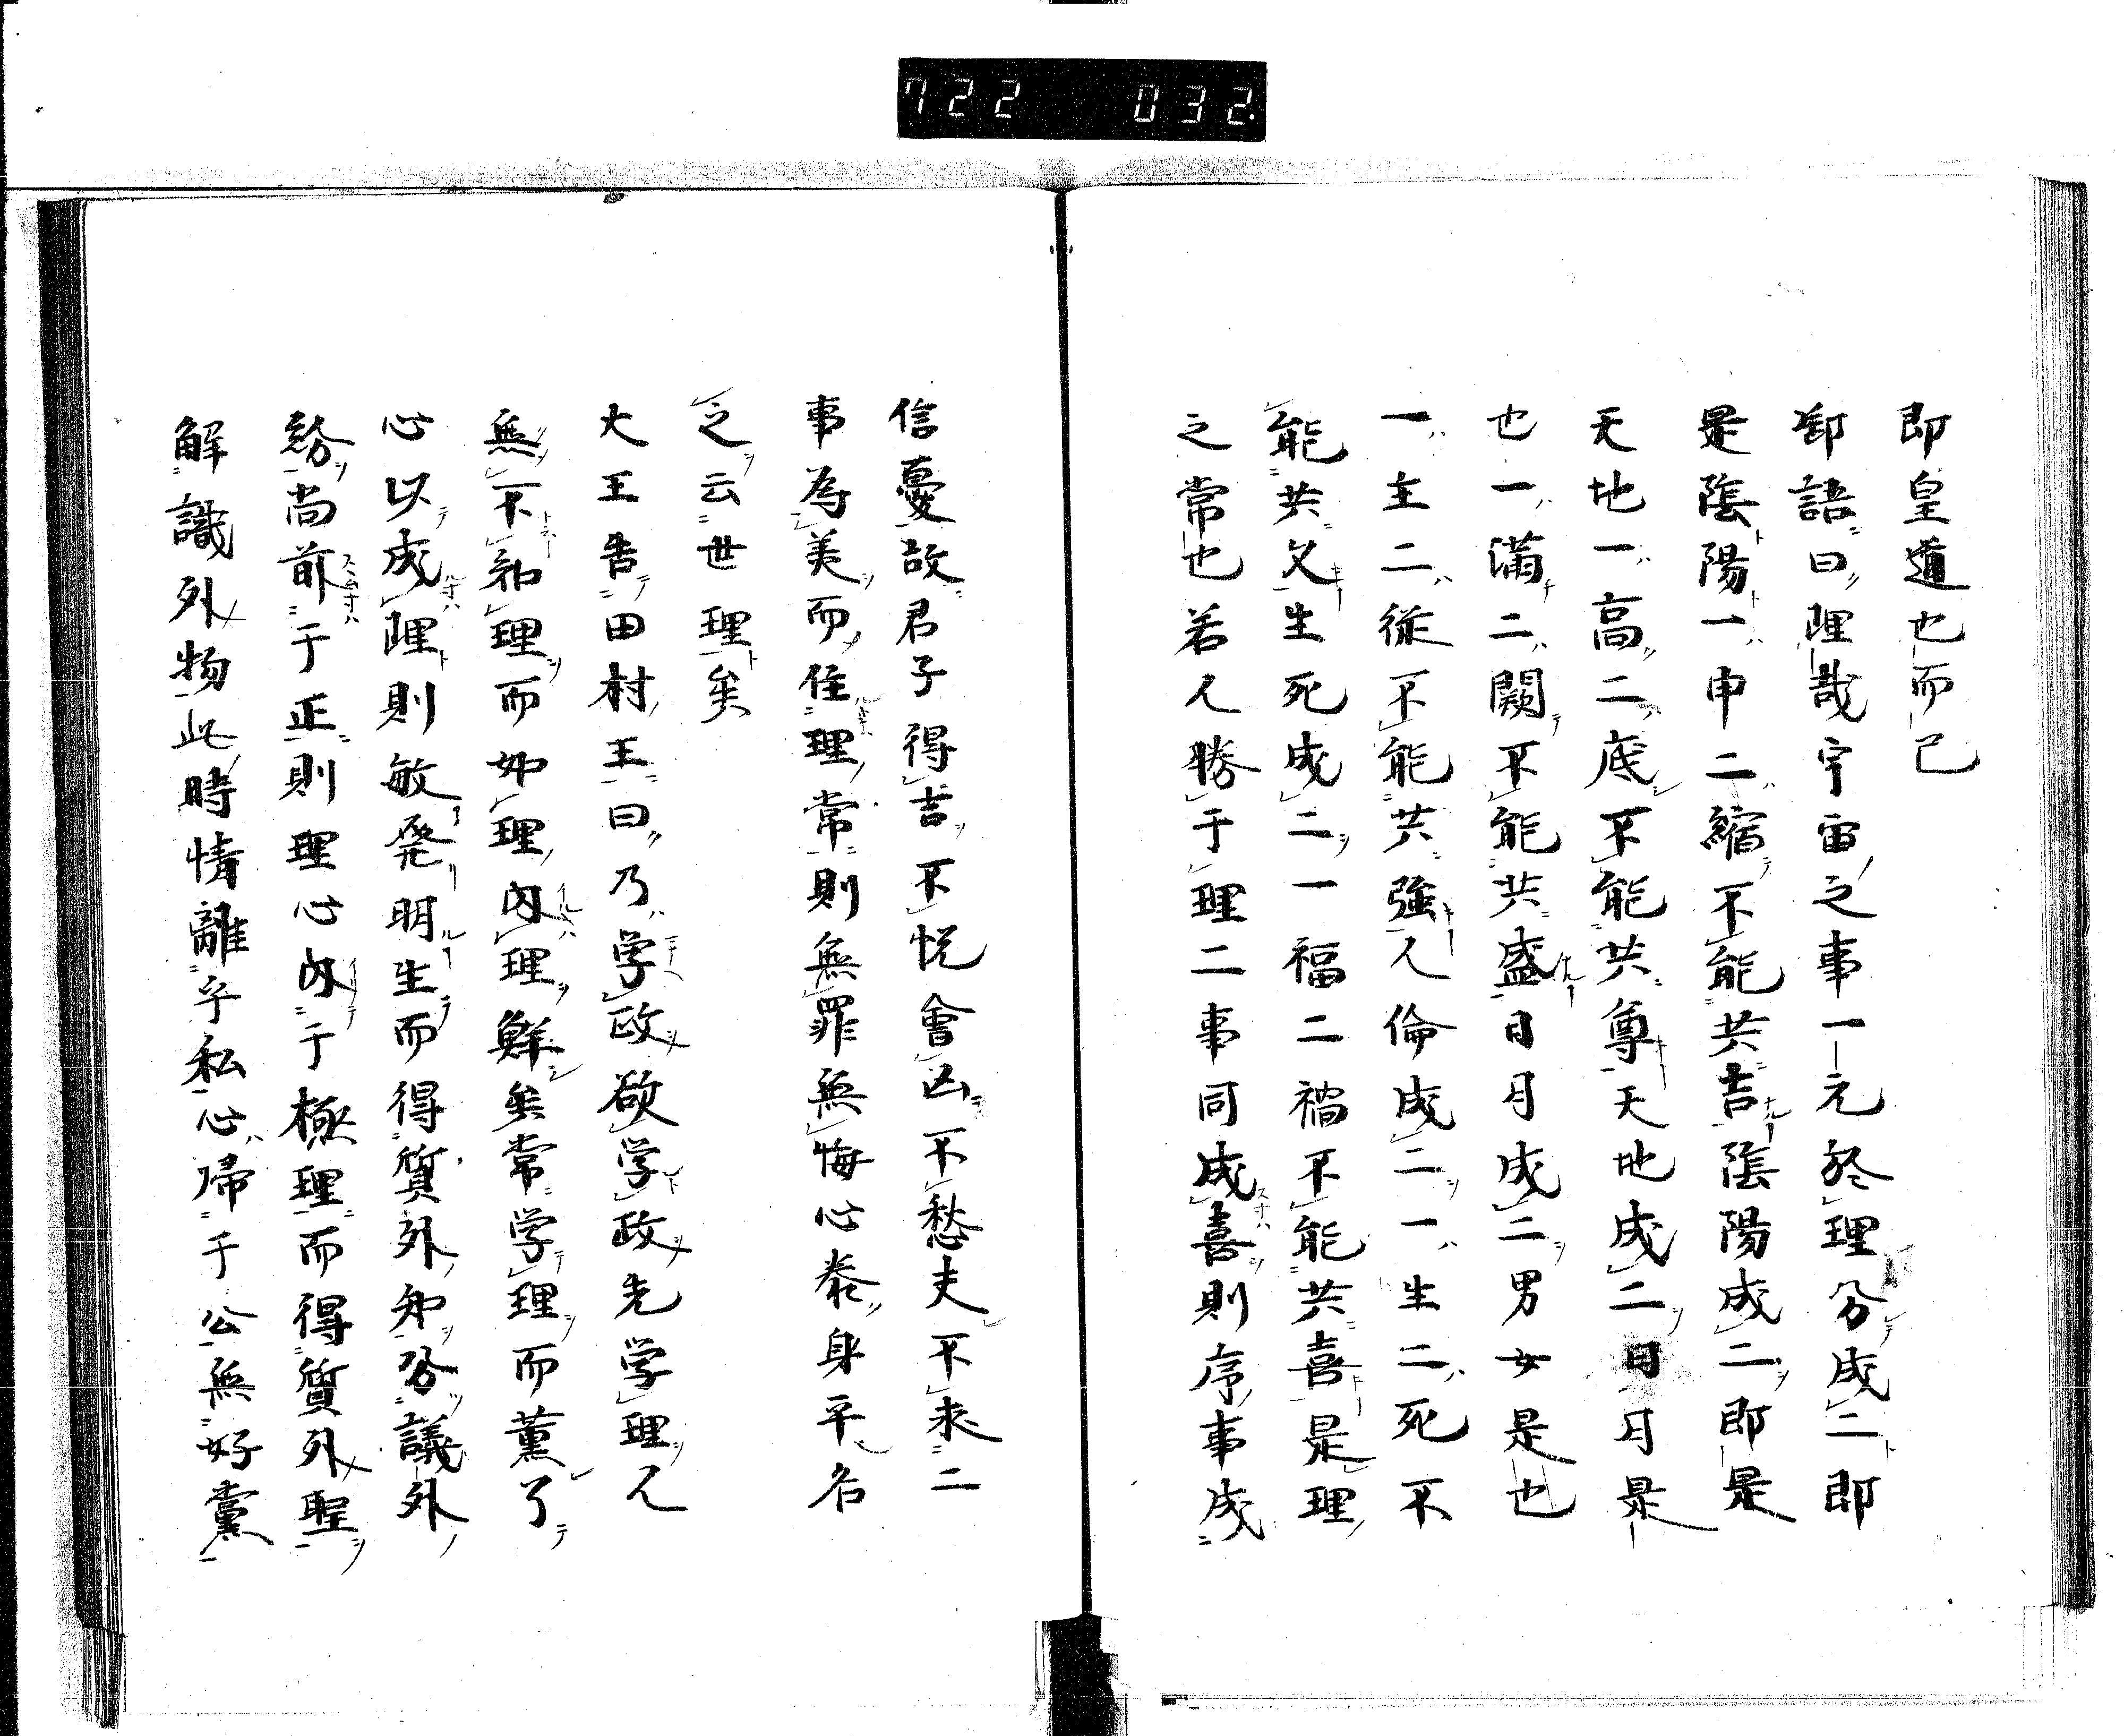 722 032.
即皇道也而已
卸語曰理哉宇宙之事一元於理分成二即
是陰陽一申二縮不能共吉陰陽成二即是
天地一高二底不能共尊天地成二日月是
也一滿二闕不能共盛日月成二男女是也
一主二從不能共強人倫成二一生二死不
能共久生死成二一福二禍不能共喜是理
之常也若人勝于理二事同成喜則序事成
信憂故君子得吉不悦會凶不愁夫不来二
事為美而住理常則無罪無悔心泰身平名
之云世理矣
大王告田村王曰乃学政欲学政先学理人
無不知理而如理内理鮮矣常学理而薫了
心以成理則敏発明生而得質外知分議外
紛尚前于正則理心内于極理而得質外聖
解識外物此時情離乎私心帰于公無好黨